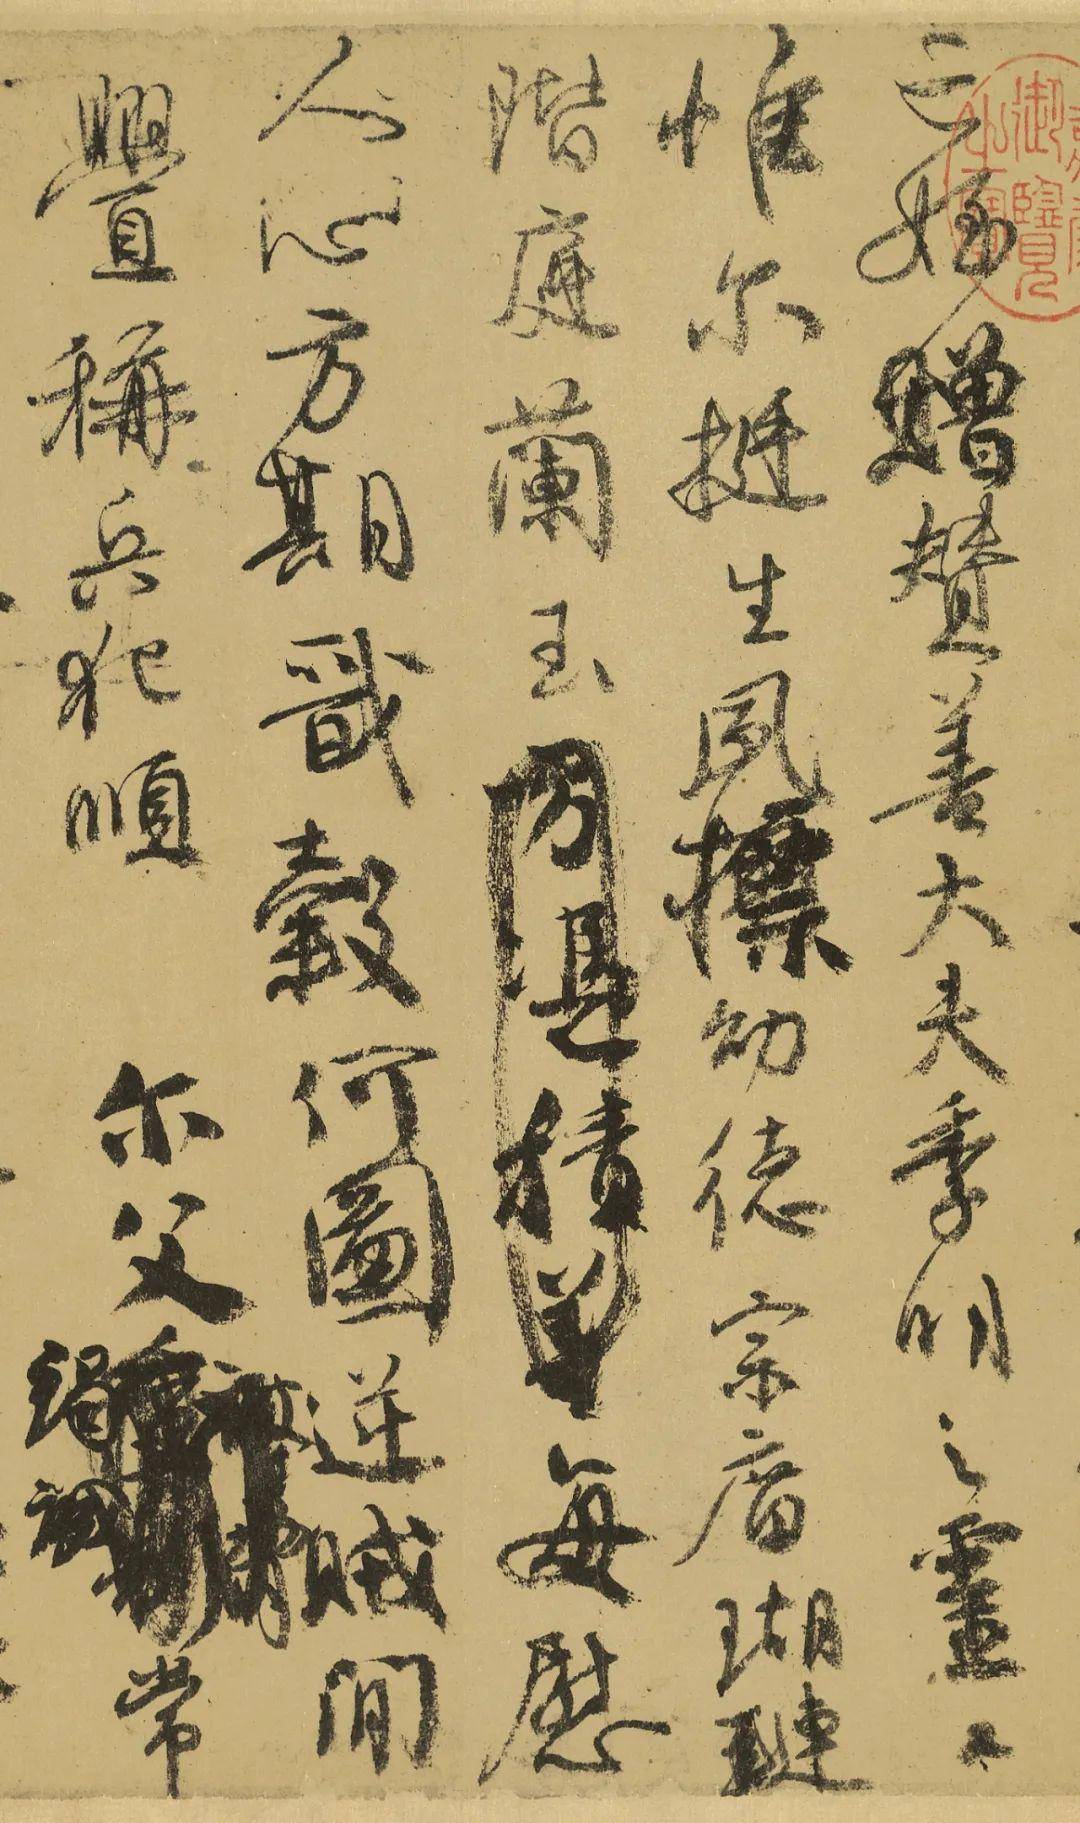 亡姪贈贊善大夫季明之靈曰
惟尔挺生夙標幼德宗庿瑚璉
階庭蘭玉方憑積善每慰
人心方期戩穀何圖逆賊間
釁稱兵犯順尔父竭誠常
御覽